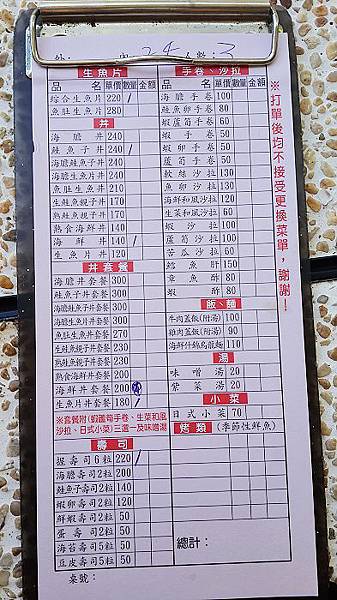 24
人數:3
生魚片
品名 單價 數量 金額
綜合生魚片 220 /
魚肚生魚片 280
丼
海膽丼 240
鮭魚子丼 240
海膽鮭魚子丼 240
海膽生魚片丼 240
魚肚生魚片丼 210
生鮭親子丼 170
熟鮭親子丼 170
熟食海鮮丼 140
海鮮丼 140 /
生魚片丼 120
丼套餐
海膽丼套餐 300
鮭魚子丼套餐 300
海膽鮭魚子丼套餐 300
海膽生魚片丼套餐 300
魚肚生魚片丼套餐 270
生鮭親子丼套餐 230
熟鮭親子丼套餐 230
熟食海鮮丼套餐 200
海鮮丼套餐 200
生魚片丼套餐 180 /
※套餐附(蝦蘆筍手卷、生菜和風
沙拉、日式小菜)三選一及味噌湯
壽司
握壽司6粒 220 /
海膽壽司2粒 200
鮭魚子壽司2粒 140
蝦卵壽司2粒 120
鮮蝦壽司2粒 50
蛋壽司2粒 50
海苔壽司5粒 50
豆皮壽司5粒 50
桌號:
手卷、沙拉
品名 單價 數量 金額
海膽手卷 100
鮭魚卵手卷 80
蝦蘆筍手卷 60
蝦手卷 50
蝦卵手卷 50
蘆筍手卷 50
軟絲沙拉 130
魚卵沙拉 130
海鮮和風沙拉 120
生菜和風沙拉 60
蝦沙拉 100
蘆筍沙拉 100
苦瓜沙拉 60
鱈魚肝 150
章魚酢 80
蝦酢 80
飯、麵
牛肉蓋飯(附湯) 100
雞肉蓋飯(附湯) 90
海鮮什錦烏龍麵 110
湯
味噌湯 20
紫菜湯 20
小菜
日式小菜 70
烤類 (季節性鮮魚)
總計:
※打單後均不接受更換菜單,謝謝!